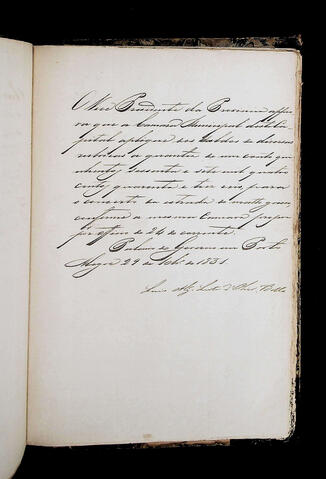 O Vice Presidente da Provincia appro
va que a Camara Municipal desta Ca
pital applique dos saldos de diversas
rubricas a quantia de um conto qui
nhentos sessenta e sete mil quatro
centos quarenta e tres reis para
o concerto da estrada do matto grosso,
conforme a mesma Camara propoz
por officio de 26 do corrente.
Palacio do Governo em Porto
Alegre 29 de de 1851.
Luis Alz Leite d'Olivª Bello